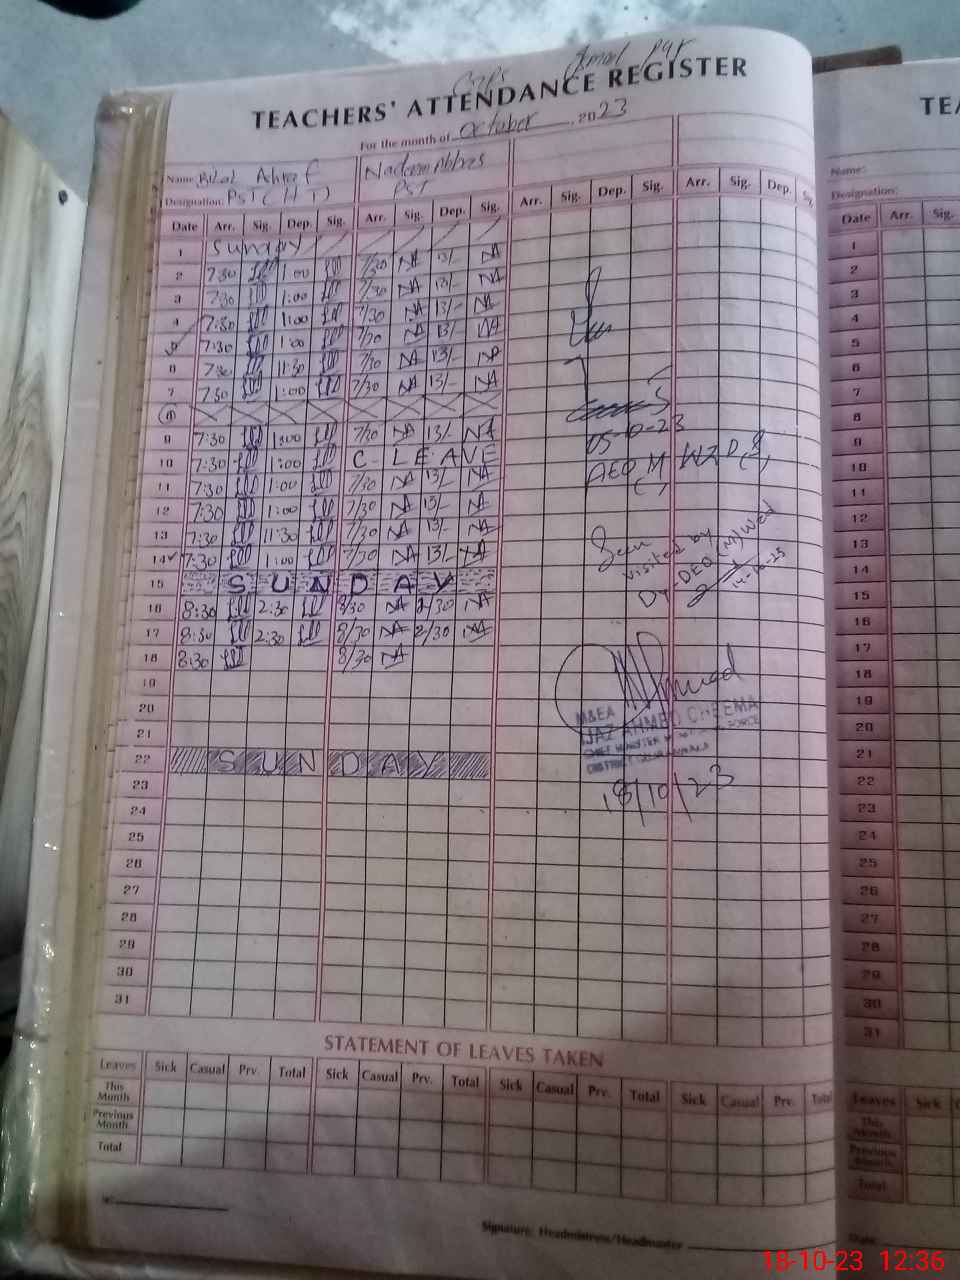 GPS Jmal Pur
TEACHERS' ATTENDANCE REGISTER
For the month of October 2023
Name: Bilal Ashraf Nadeem Abbas
Designation: PST (HT) PST
Date Arr. Sig. Dep. Sig. Arr. Sig. Dep. Sig. Arr. Sig. Dep. Sig. Arr. Sig. Dep. Sig.
1 Sunday
2 7:30 1:00 7/30 NA 13/- NA
3 7:30 1:00 7/30 NA 13/- NA
4 7:30 1:00 7/30 NA 13/- NA
5 7:30 1:00 7/30 NA 13/- NA
6 7:30 11:30 7/30 NA 13/- NA
7 7:30 1:00 7/30 NA 13/- NA
8
9 7:30 1:00 7/30 NA 13/- NA
10 7:30 1:00 C- LEAVE
11 7:30 1:00 7/30 NA 13/- NA
12 7:30 1:00 7/30 NA 13/- NA
13 7:30 11:30 7/30 NA 13/- NA
14 7:30 1:00 7/30 NA 13/- NA
15 SUNDAY
16 8:30 2:30 8/30 NA 2/30 NA
17 8:30 2:30 8/30 NA 2/30 NA
18 8:30 8/30 NA
19
20
21
22 SUNDAY
23
24
25
26
27
28
29
30
31
05-10-23
AEO M WZD
Seen
visited by
DEO (M) Wzd
M&EA
IJAZ AHMED CHEEMA
18/10/23
STATEMENT OF LEAVES TAKEN
Leaves Sick Casual Prv. Total Sick Casual Prv. Total Sick Casual Prv. Total Sick Casual Prv. Total
This Month
Previous Month
Total
Signature, Headmistress/Headmaster
TEA
Name:
Designation:
Date Arr. Sig.
1
2
3
4
5
6
7
8
9
10
11
12
13
14
15
16
17
18
19
20
21
22
23
24
25
26
27
28
29
30
31
Leaves Sick
This Month
Previous Month
Total
Date
18-10-23 12:36